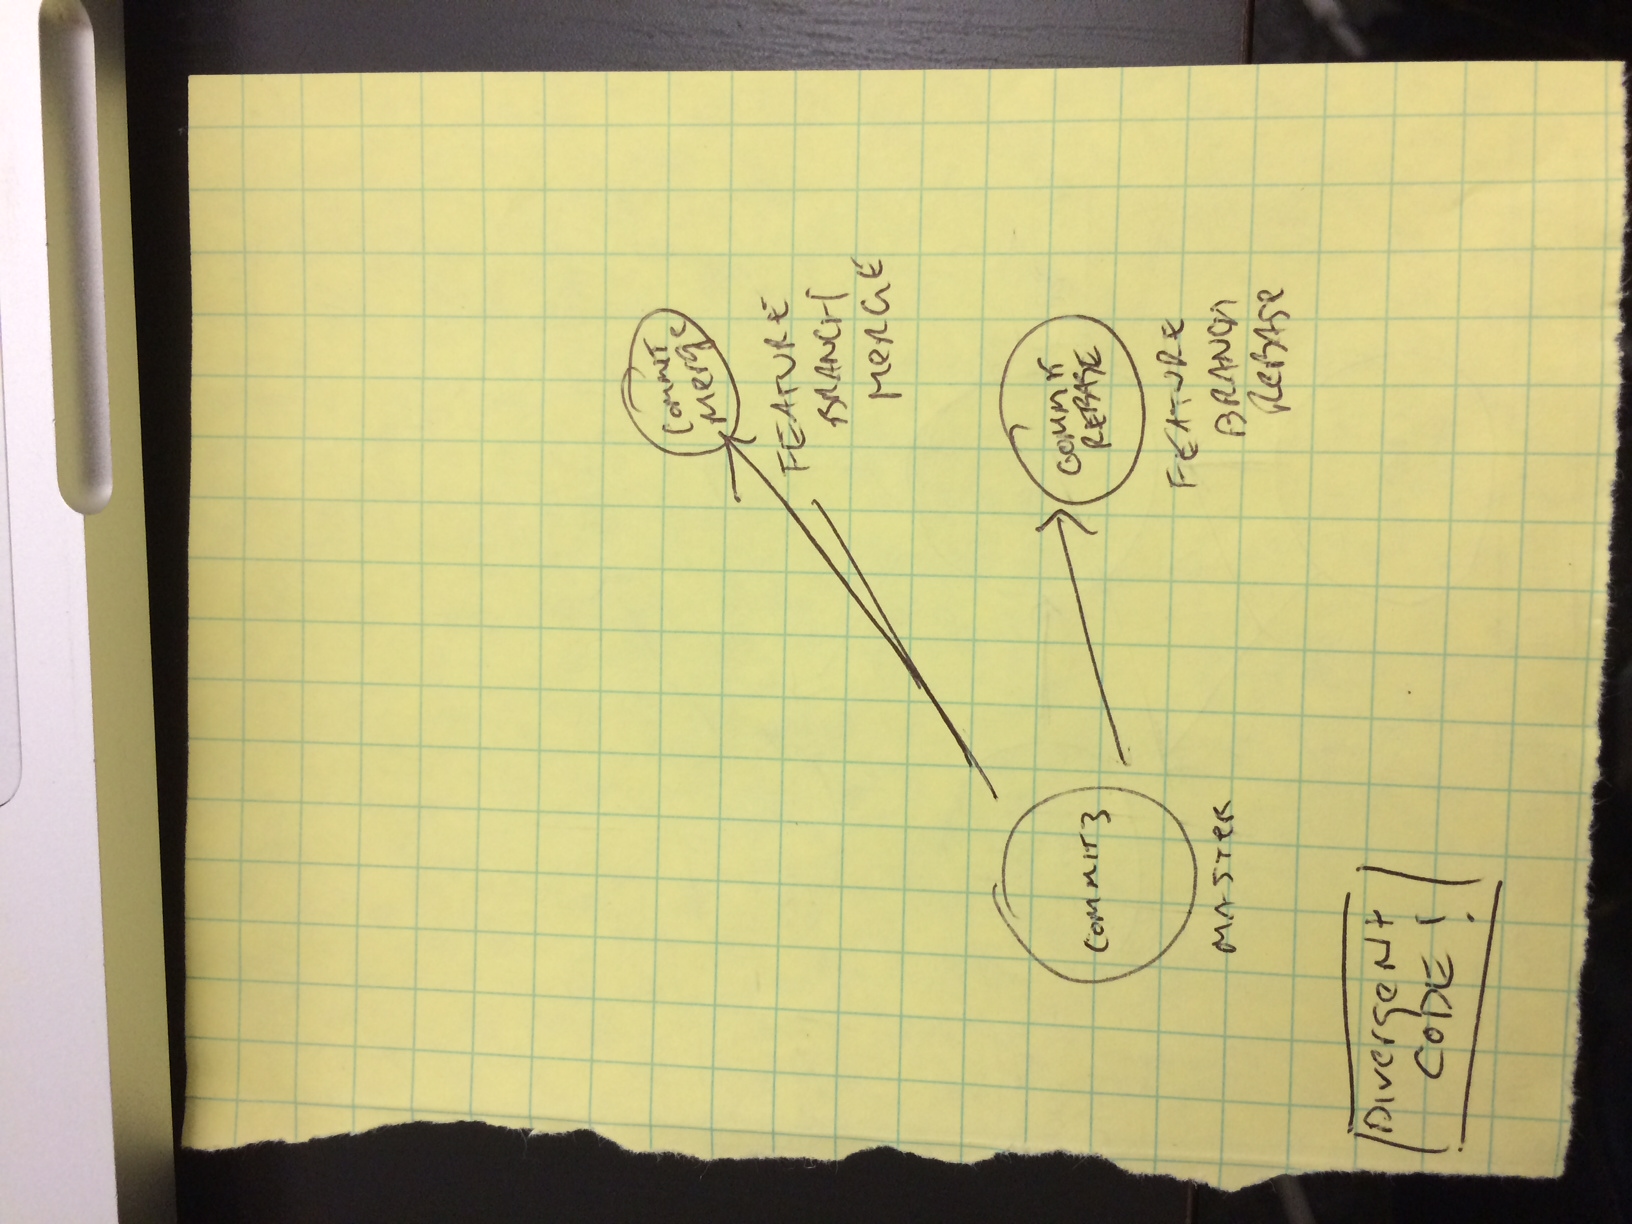 COMMIT
Merge
FEATURE
BRANCH
MERGE
COMMIT 3
MASTER
COMMIT
REBASE
FEATURE
BRANCH
REBASE
Divergent
CODE!